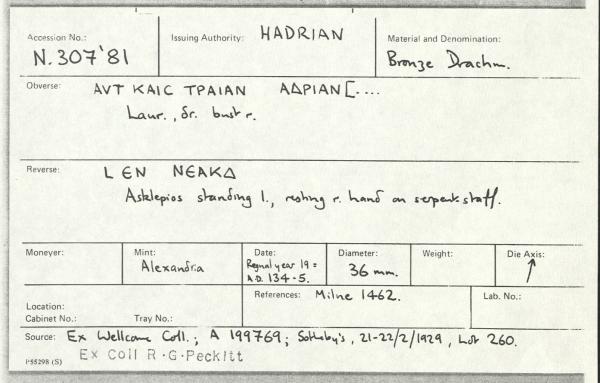 Accession No.: Issuing Authority: HADRIAN Material and Denomination:
N.307'81 Bronze Drachm.
Obverse: ΑVΤ ΚΑΙC ΤΡΑΙΑΝ ΑΔΡΙΑΝ[....
Laur., dr. bust r.
Reverse: L ЄΝ ΝЄΑΚΔ
Asklepios standing l., resting r. hand on serpent staff.
Moneyer: Mint: Date: Diameter: Weight: Die Axis:
Alexandria Regnal year 19 = A.D. 134-5. 36 mm. ↑
References: Milne 1462. Lab. No.:
Location:
Cabinet No.: Tray No.:
Source: Ex Wellcome Coll.; A 199769; Sotheby's, 21-22/2/1929, Lot 260.
P55298 (S) Ex Coll R.G.Peckitt